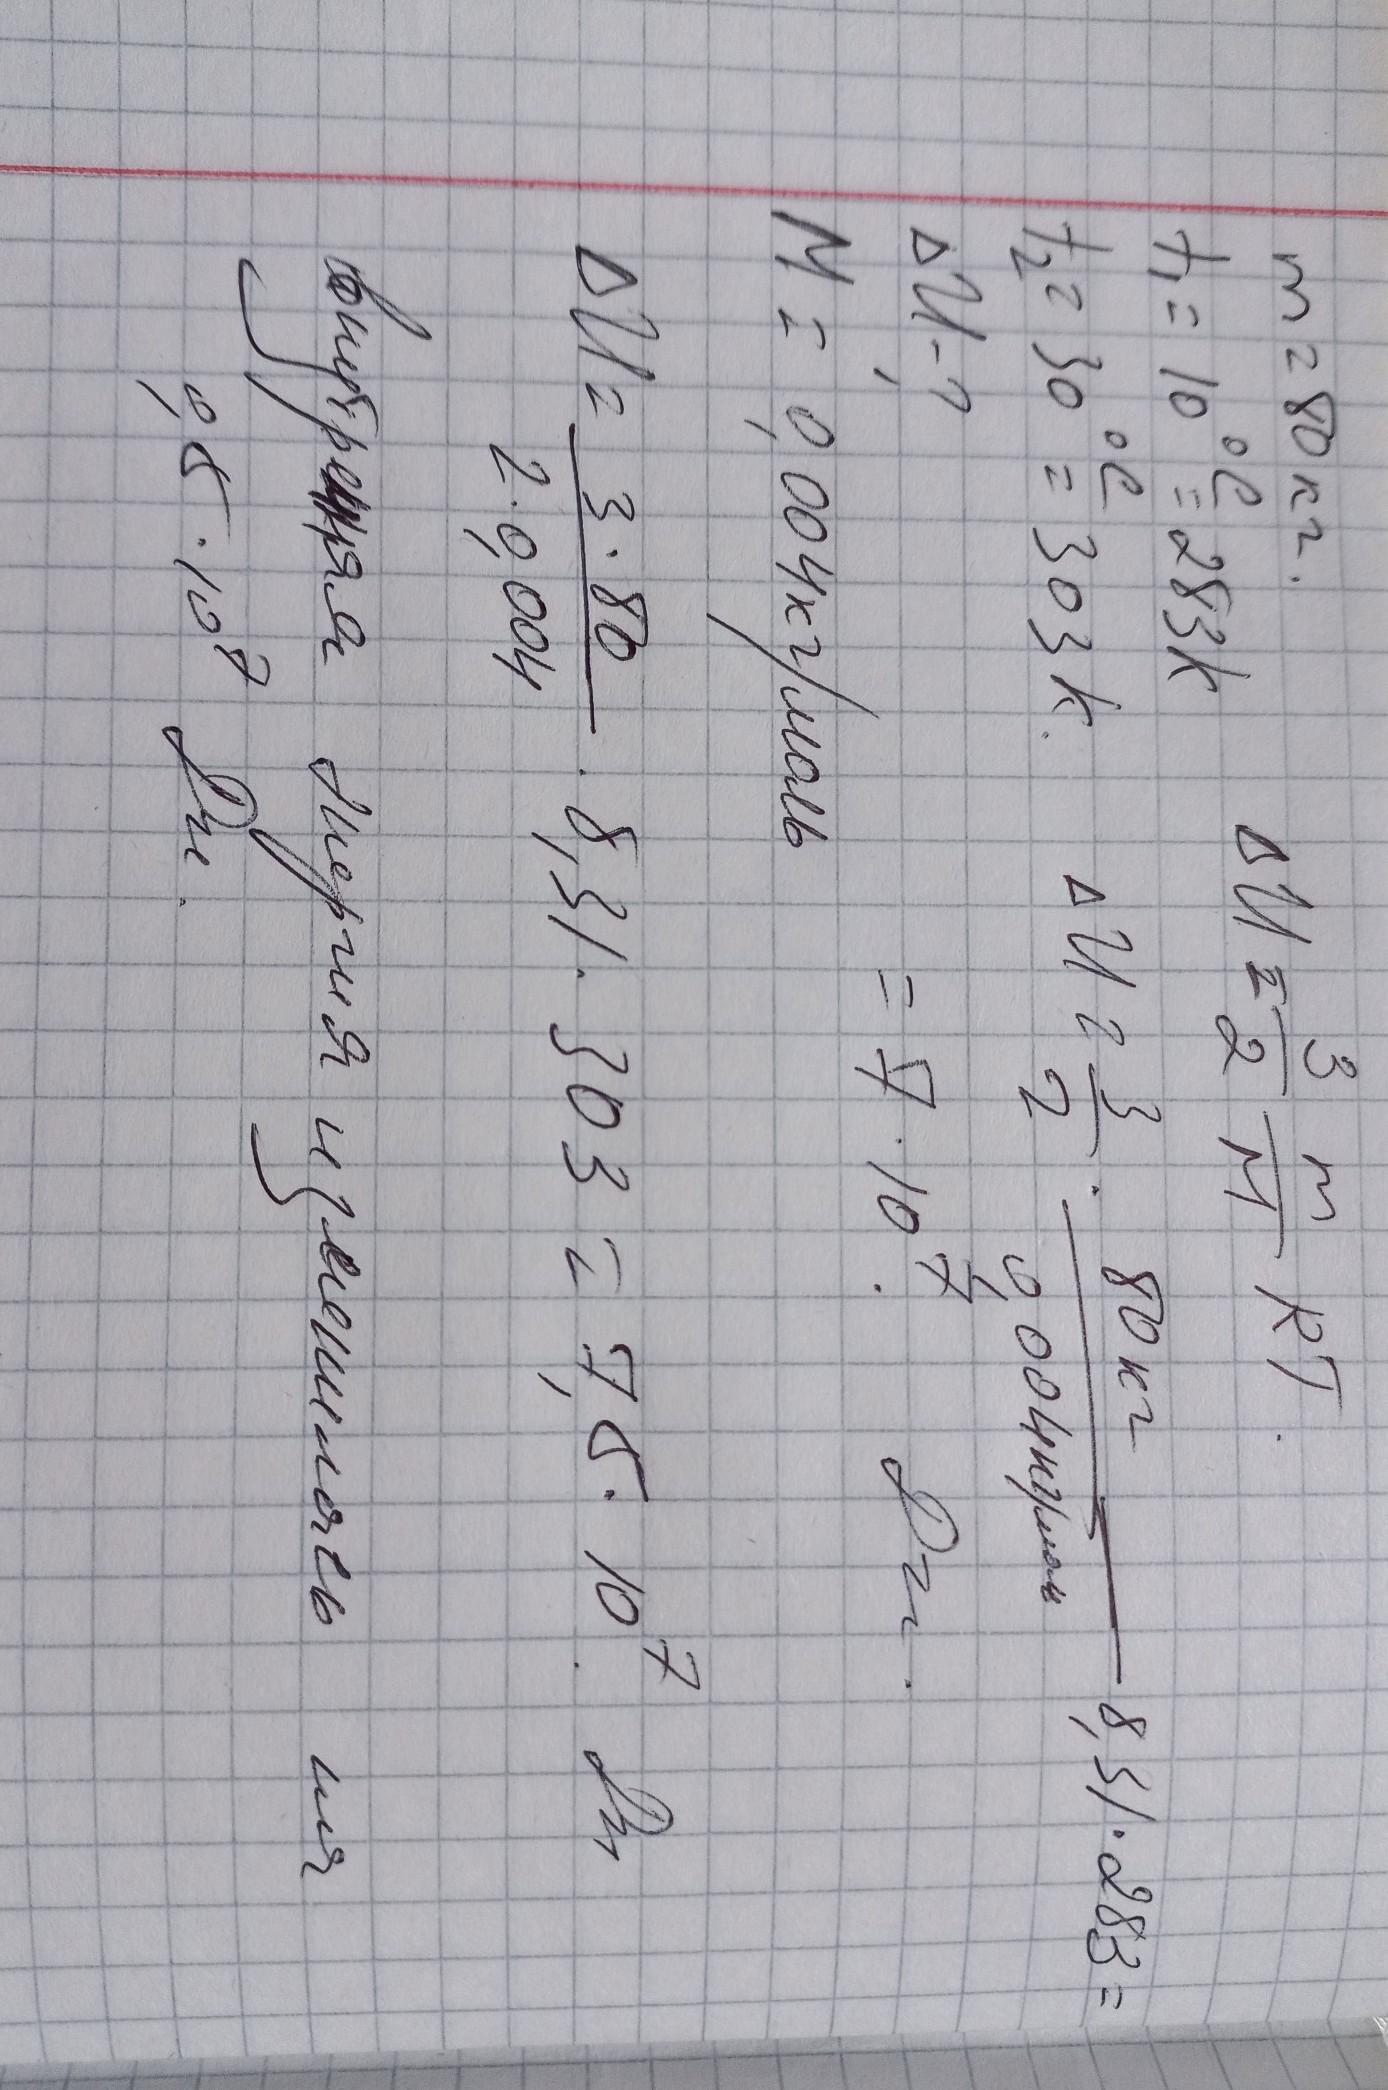 m = 80 кг.
t₁ = 10 °C = 283 K
t₂ = 30 °C = 303 K.
ΔU - ?
M = 0,004 кг/моль
ΔU = 3/2 m/M RT.
ΔU = 3/2 · 80 кг / 0,004 кг/моль 8,31 · 283 =
= 7 · 10⁷. Дж.
ΔU = 3 · 80 / 2 · 0,004 · 8,31 · 303 = 7,5 · 10⁷. Дж
Внутренняя энергия изменилась на
0,5 · 10⁷ Дж.